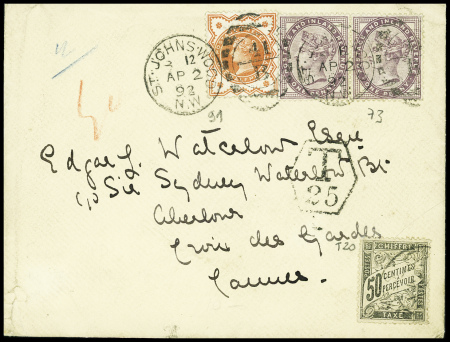 ST. JOHN'S WOOD
12
AP 2
92
N.W
91
73
Edgar L. Waterlow Esqre
c/o Sir Sydney Waterlow Bt.
T
25
Croix des Gardes
T20
Cannes.
CHIFFRE
50 CENTIMES
À PERCEVOIR
TAXE